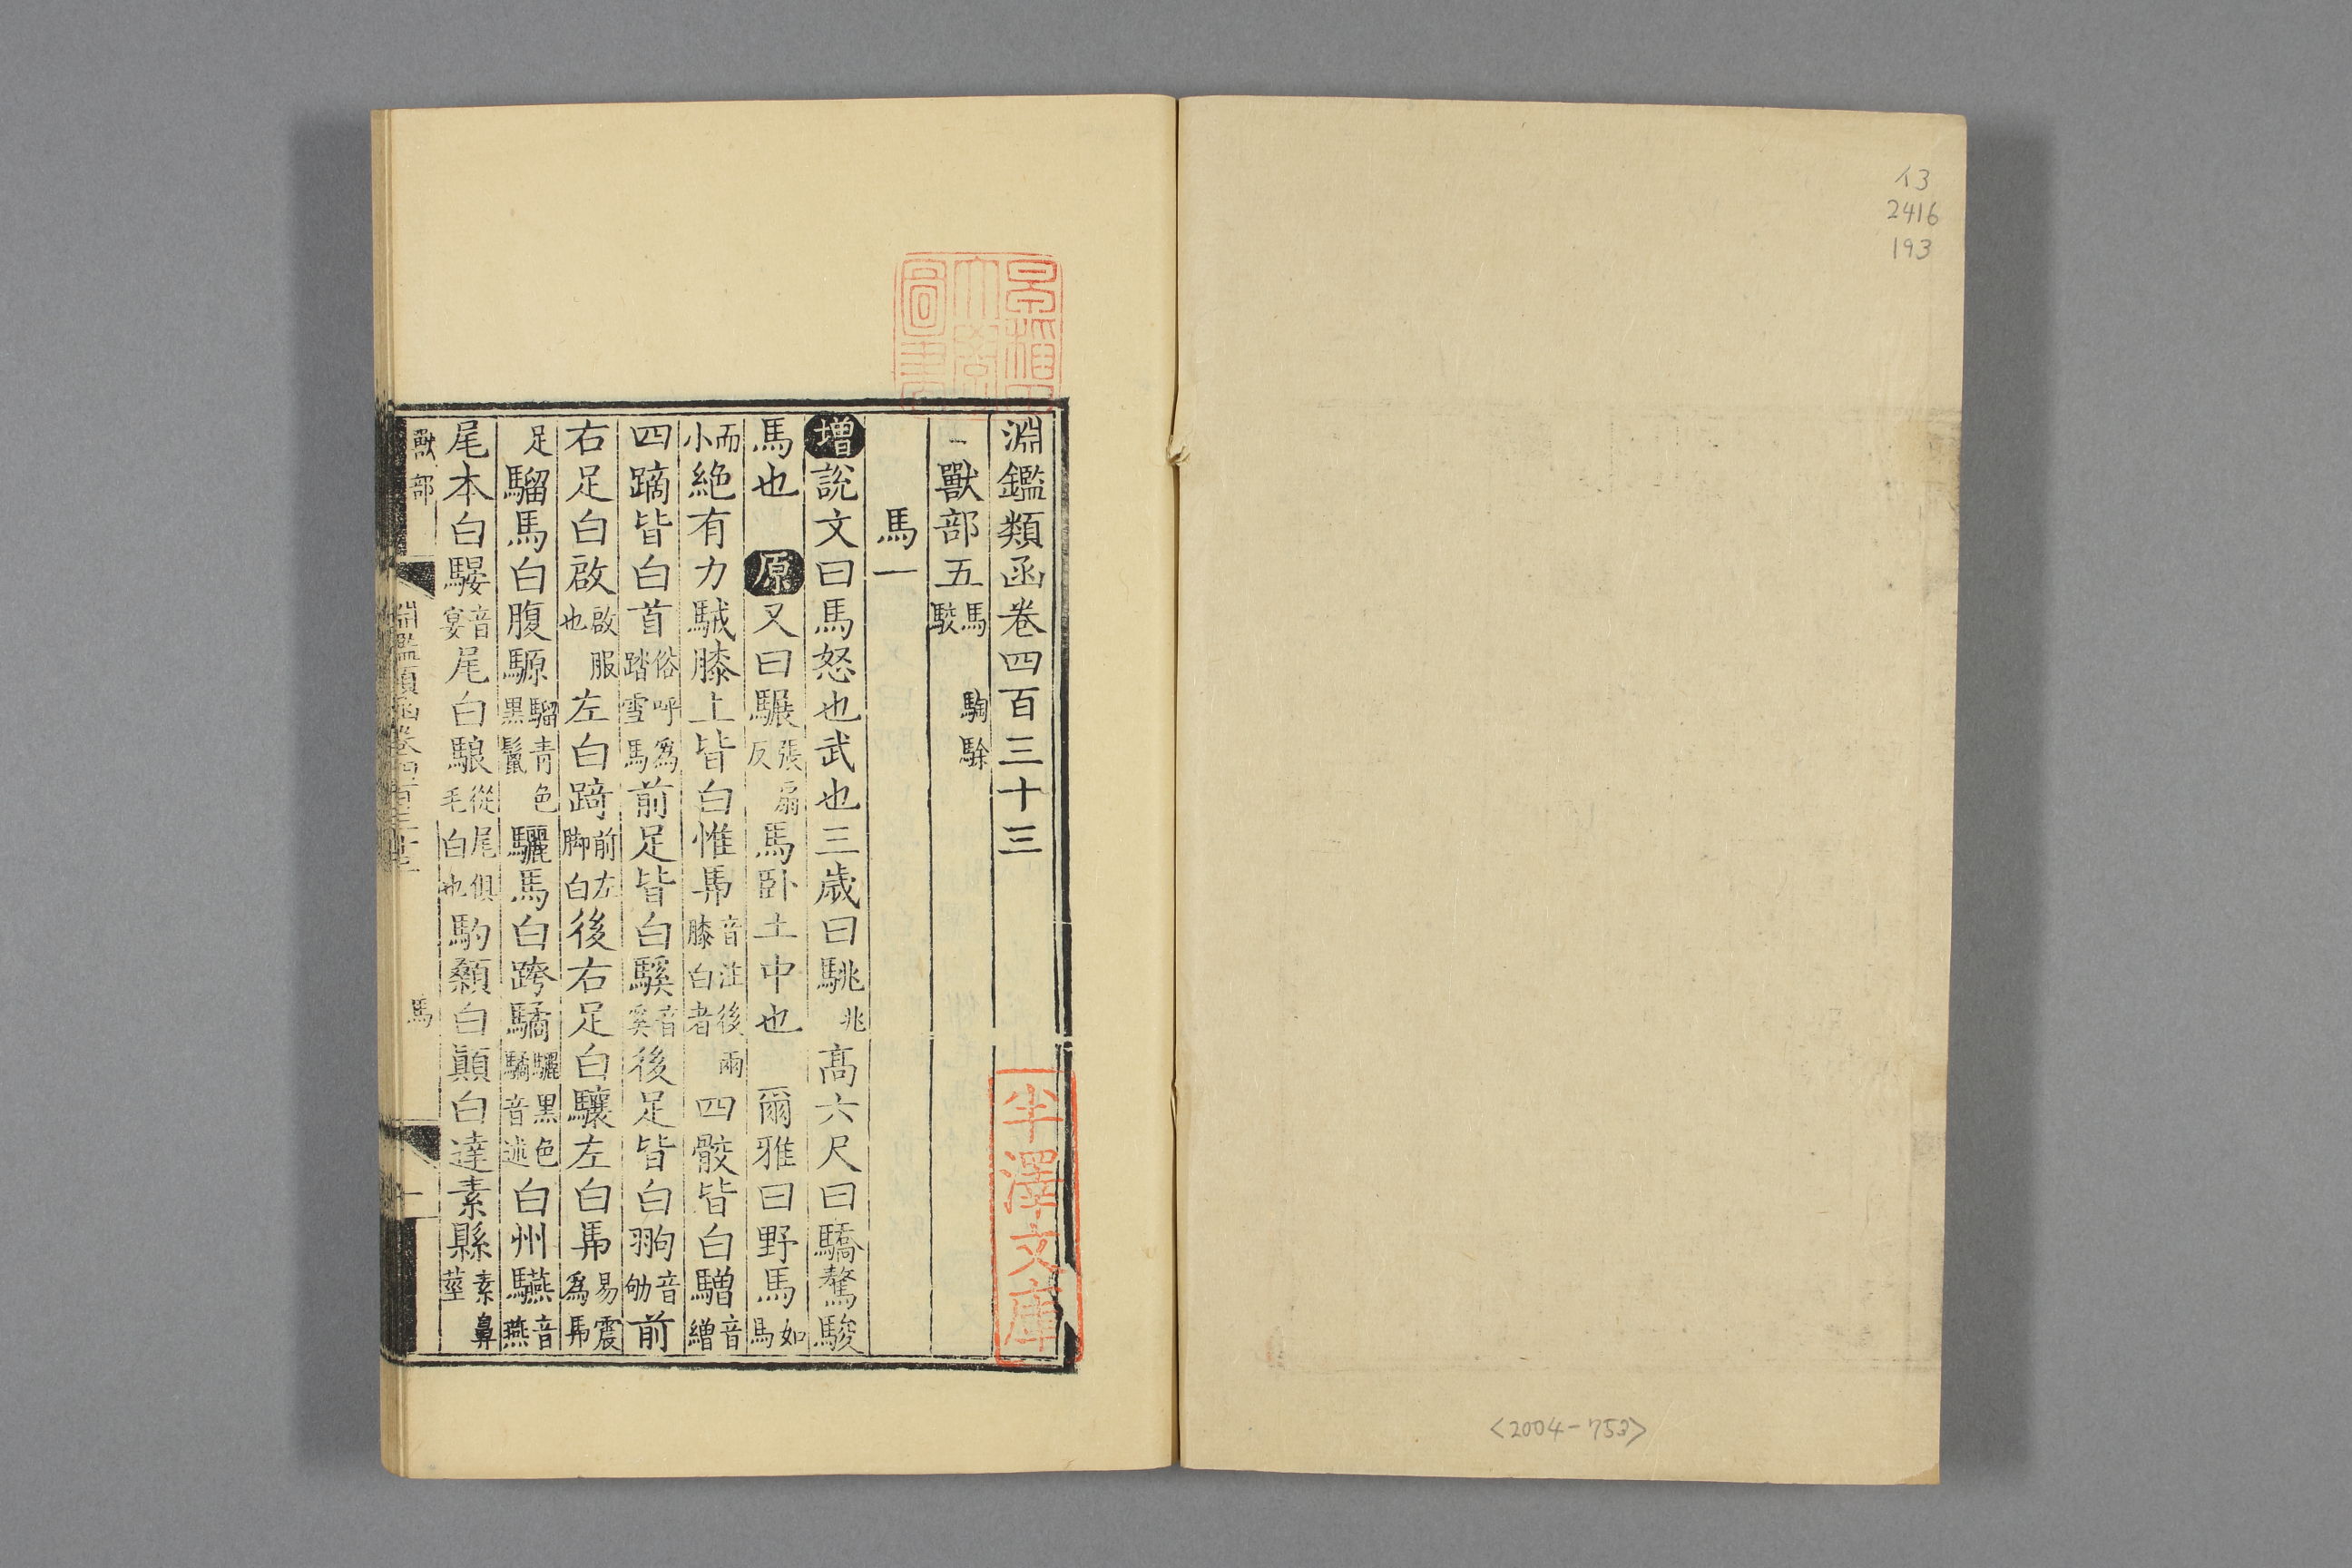 13
2416
193
<2004-753>
淵鑑類函卷四百三十三
獸部五 馬 駒駼 駮
馬一
增說文曰馬怒也武也三歲曰駣兆高六尺曰驕驁駿
馬也 原又曰驏張扇反馬卧土中也 爾雅曰野馬如馬
而小絶有力駥膝上皆白惟馵音注後兩膝白者四骹皆白驓音繒
四蹢皆白首俗呼爲踏雪馬前足皆白騱音奚後足皆白翑音劬前
右足白啟啟服也左白踦前左脚白後右足白驤左白馵易震爲馵
足駵馬白腹騵騮青色黑鬣驪馬白跨驈驪黑色驈音述白州驠音燕
尾本白騴音宴尾白駺從尾俱毛白也馰顙白顛白達素縣素鼻莖
獸部
淵鑑類函卷四百三十三
馬
一
半澤文庫